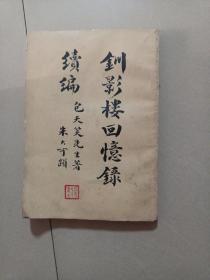 釧影楼回憶錄
續編
包天笑先生著
朱大可題